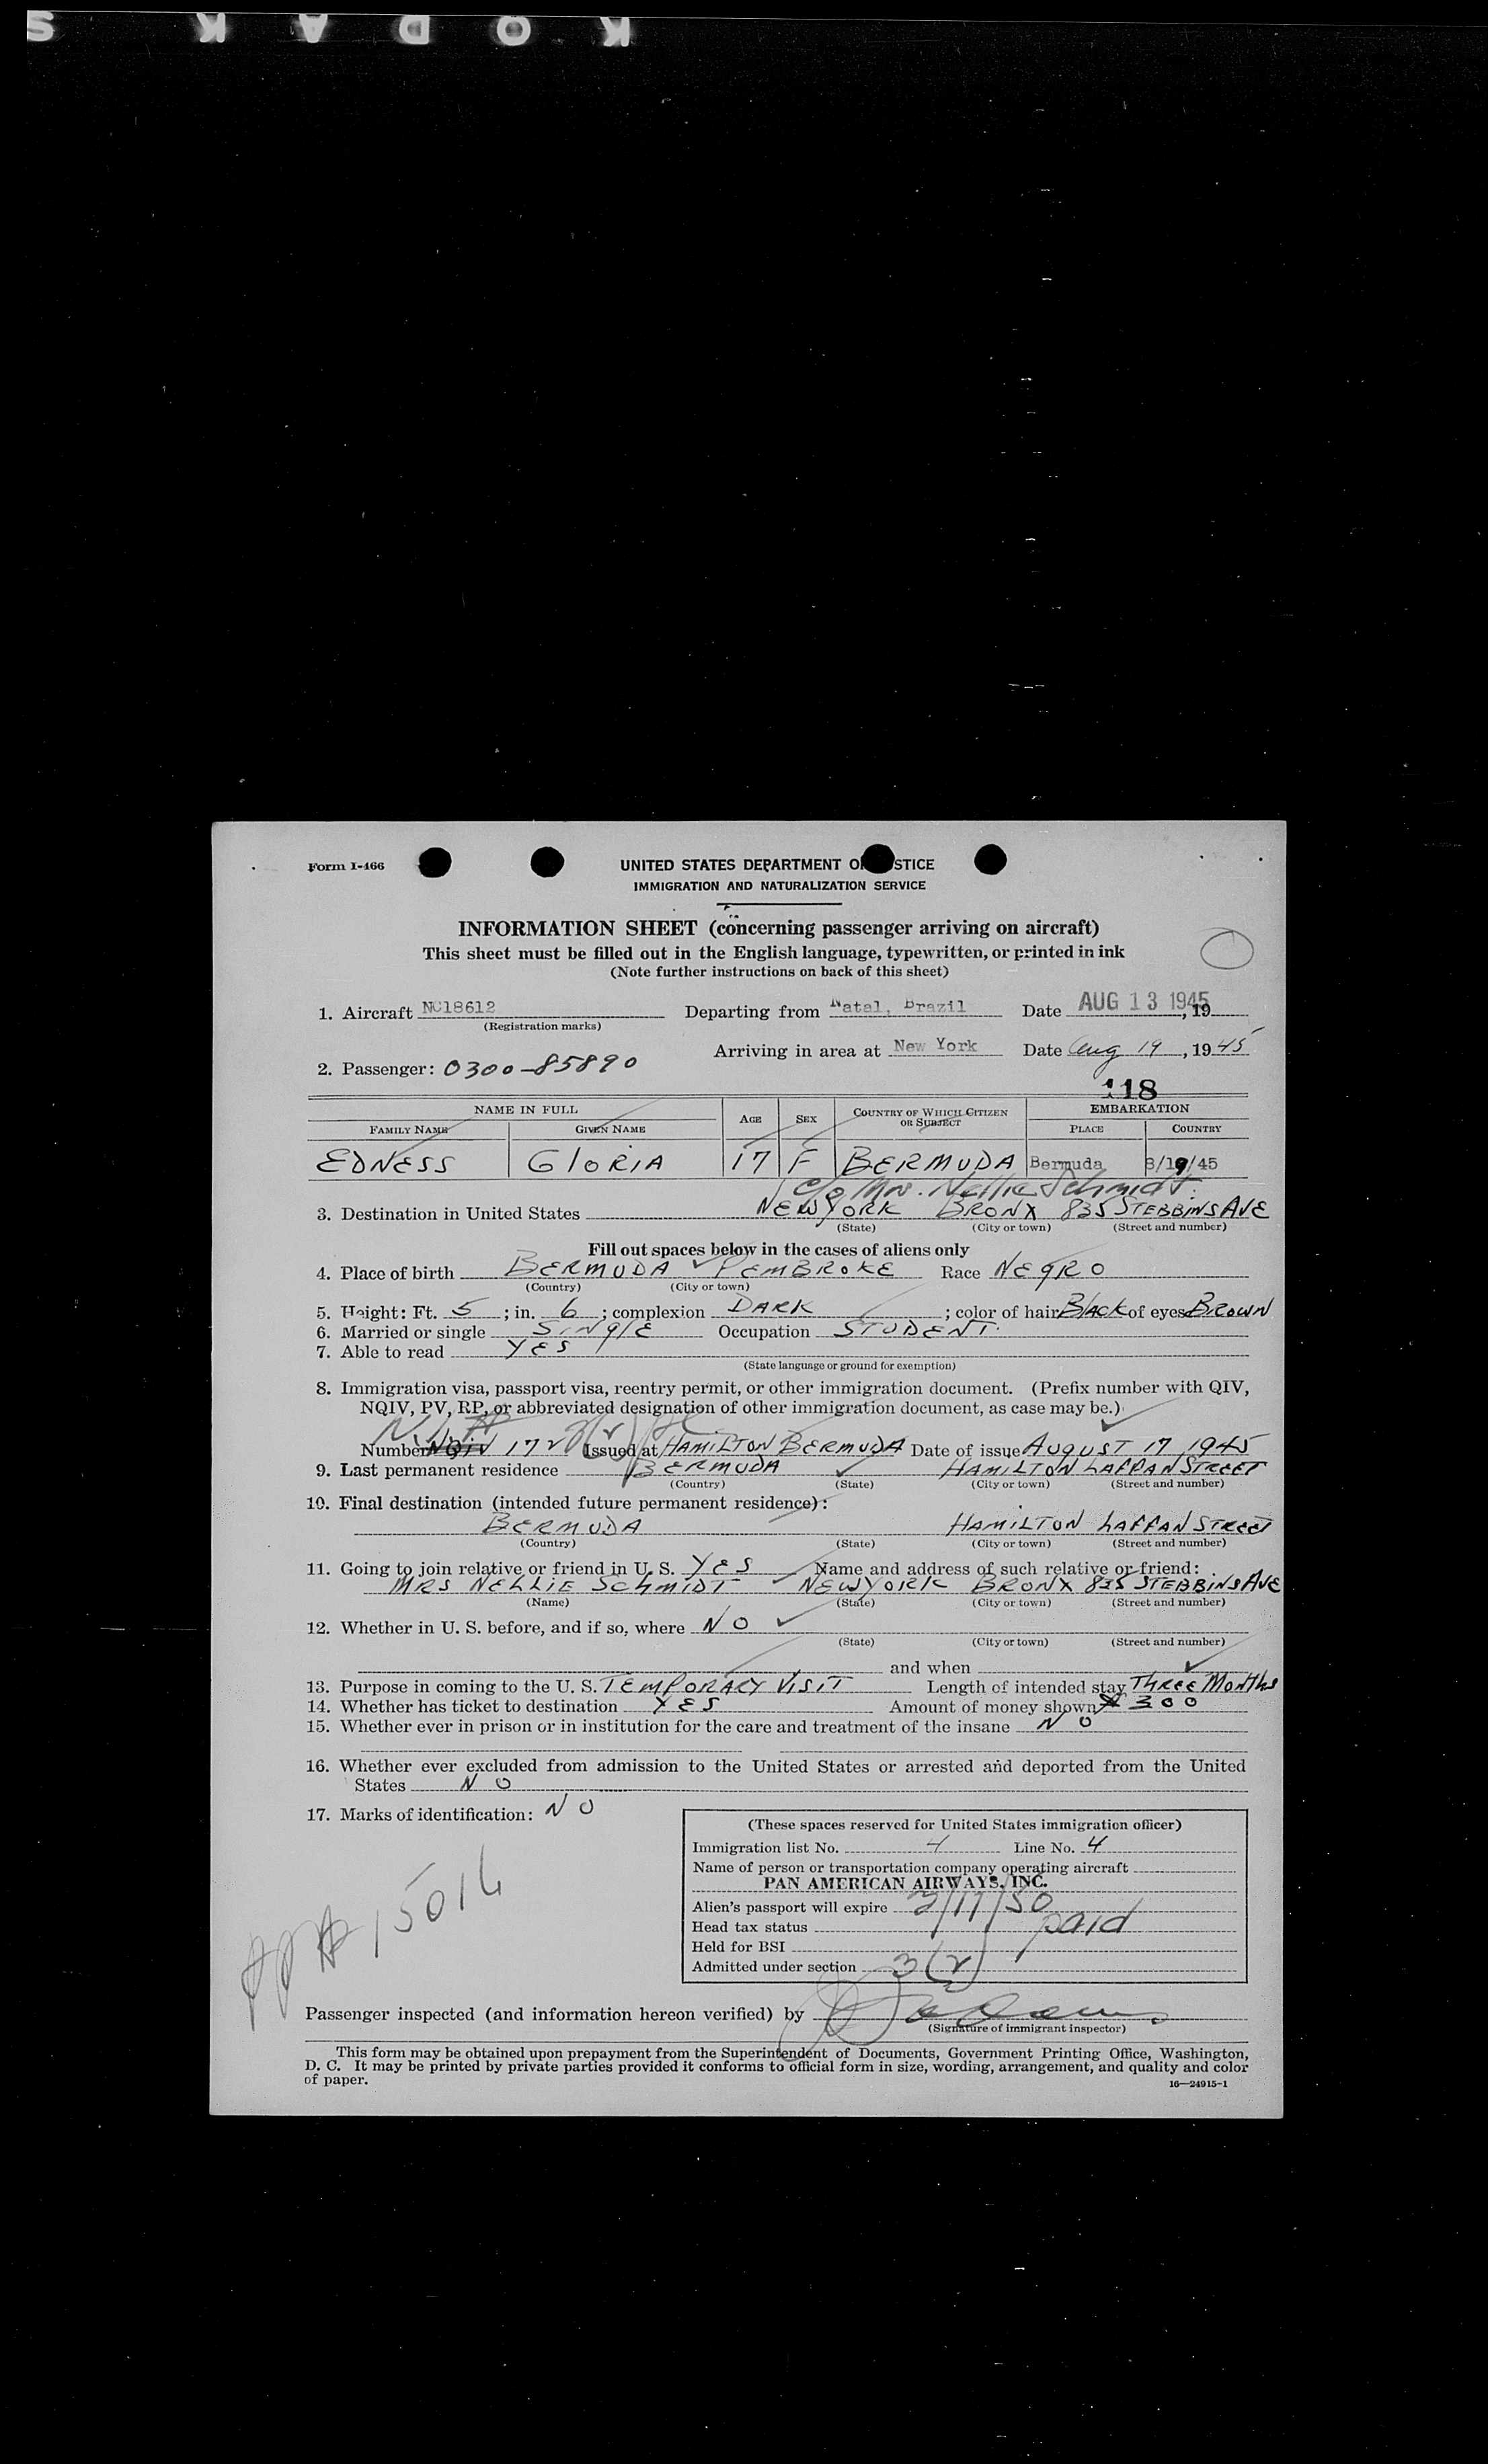 S K A D O K
Form I-466
UNITED STATES DEPARTMENT O STICE
IMMIGRATION AND NATURALIZATION SERVICE
INFORMATION SHEET (concerning passenger arriving on aircraft)
This sheet must be filled out in the English language, typewritten, or printed in ink
(Note further instructions on back of this sheet)
1. Aircraft NC18612 Departing from Natal, Brazil Date AUG 13 1945, 19
(Registration marks)
Arriving in area at New York Date Aug 19, 1945
2. Passenger: 0300-85890
118
NAME IN FULL AGE SEX COUNTRY OF WHICH CITIZEN OR SUBJECT EMBARKATION
FAMILY NAME GIVEN NAME PLACE COUNTRY
EDNESS GloRiA 17 F BERMUDA Bermuda 8/19/45
c/o Mrs. Nellie Schmidt.
3. Destination in United States NEW YORK BRONX 835 STEBBINS AVE
(State) (City or town) (Street and number)
Fill out spaces below in the cases of aliens only
4. Place of birth BERMUDA PEMBROKE Race NEGRO
(Country) (City or town)
5. Height: Ft. 5; in. 6; complexion DARK; color of hair BlAcK of eyes BROWN
6. Married or single SiNglE Occupation STUDENT.
7. Able to read YES
(State language or ground for exemption)
8. Immigration visa, passport visa, reentry permit, or other immigration document. (Prefix number with QIV,
NQIV, PV, RP, or abbreviated designation of other immigration document, as case may be.)
Number NQIV 172 Issued at HAMILTON BERMUDA Date of issue AUGUST 17 1945
9. Last permanent residence BERMUDA HAMILTON LAFFAN STREET
(Country) (State) (City or town) (Street and number)
10. Final destination (intended future permanent residence):
BERMUDA HAMILTON LAFFAN STREET
(Country) (State) (City or town) (Street and number)
11. Going to join relative or friend in U. S. YES Name and address of such relative or friend:
MRS NELLIE SCHMIDT NEW YORK BRONX 835 STEBBINS AVE
(Name) (State) (City or town) (Street and number)
12. Whether in U. S. before, and if so, where NO
(State) (City or town) (Street and number)
and when
13. Purpose in coming to the U. S. TEMPORARY VISIT Length of intended stay THREE MONTHS
14. Whether has ticket to destination YES Amount of money shown $ 300
15. Whether ever in prison or in institution for the care and treatment of the insane NO
16. Whether ever excluded from admission to the United States or arrested and deported from the United
States NO
17. Marks of identification: NO
(These spaces reserved for United States immigration officer)
Immigration list No. 4 Line No. 4
Name of person or transportation company operating aircraft
PAN AMERICAN AIRWAYS, INC.
Alien's passport will expire 2/17/50
Head tax status paid
Held for BSI
Admitted under section 3(2)
pp# 15016
Passenger inspected (and information hereon verified) by
(Signature of immigrant inspector)
This form may be obtained upon prepayment from the Superintendent of Documents, Government Printing Office, Washington,
D. C. It may be printed by private parties provided it conforms to official form in size, wording, arrangement, and quality and color
of paper.
16—24915-1